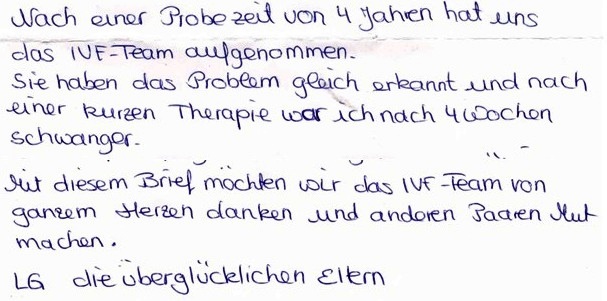 Nach einer Probezeit von 4 Jahren hat uns
das IVF-Team aufgenommen.
Sie haben das Problem gleich erkannt und nach
einer kurzen Therapie war ich nach 4 Wochen
schwanger.
Mit diesem Brief möchten wir das IVF-Team von
ganzem Herzen danken und anderen Paaren Mut
machen.
LG die überglücklichen Eltern